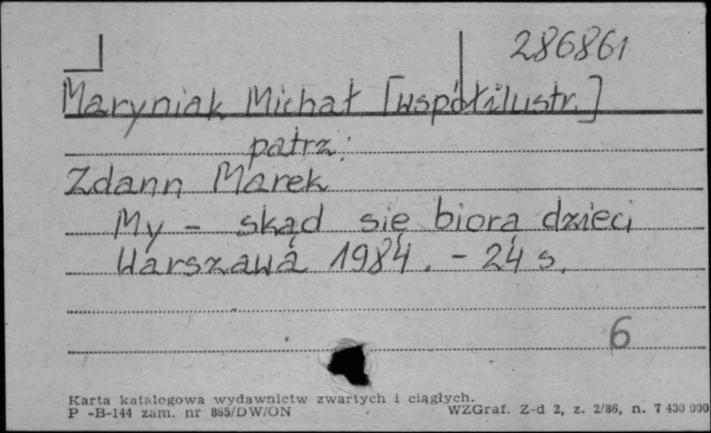 286861
Maryniak Michał [współilustr.]
patrz:
Zdann Marek
My - skąd się biorą dzieci
Warszawa 1984. - 24 s.
6
Karta katalogowa wydawnictw zwartych i ciągłych.
P -B-144 zam. nr 865/DW/ON WZGraf. Z-d 2, z. 2/86, n. 7 430 000